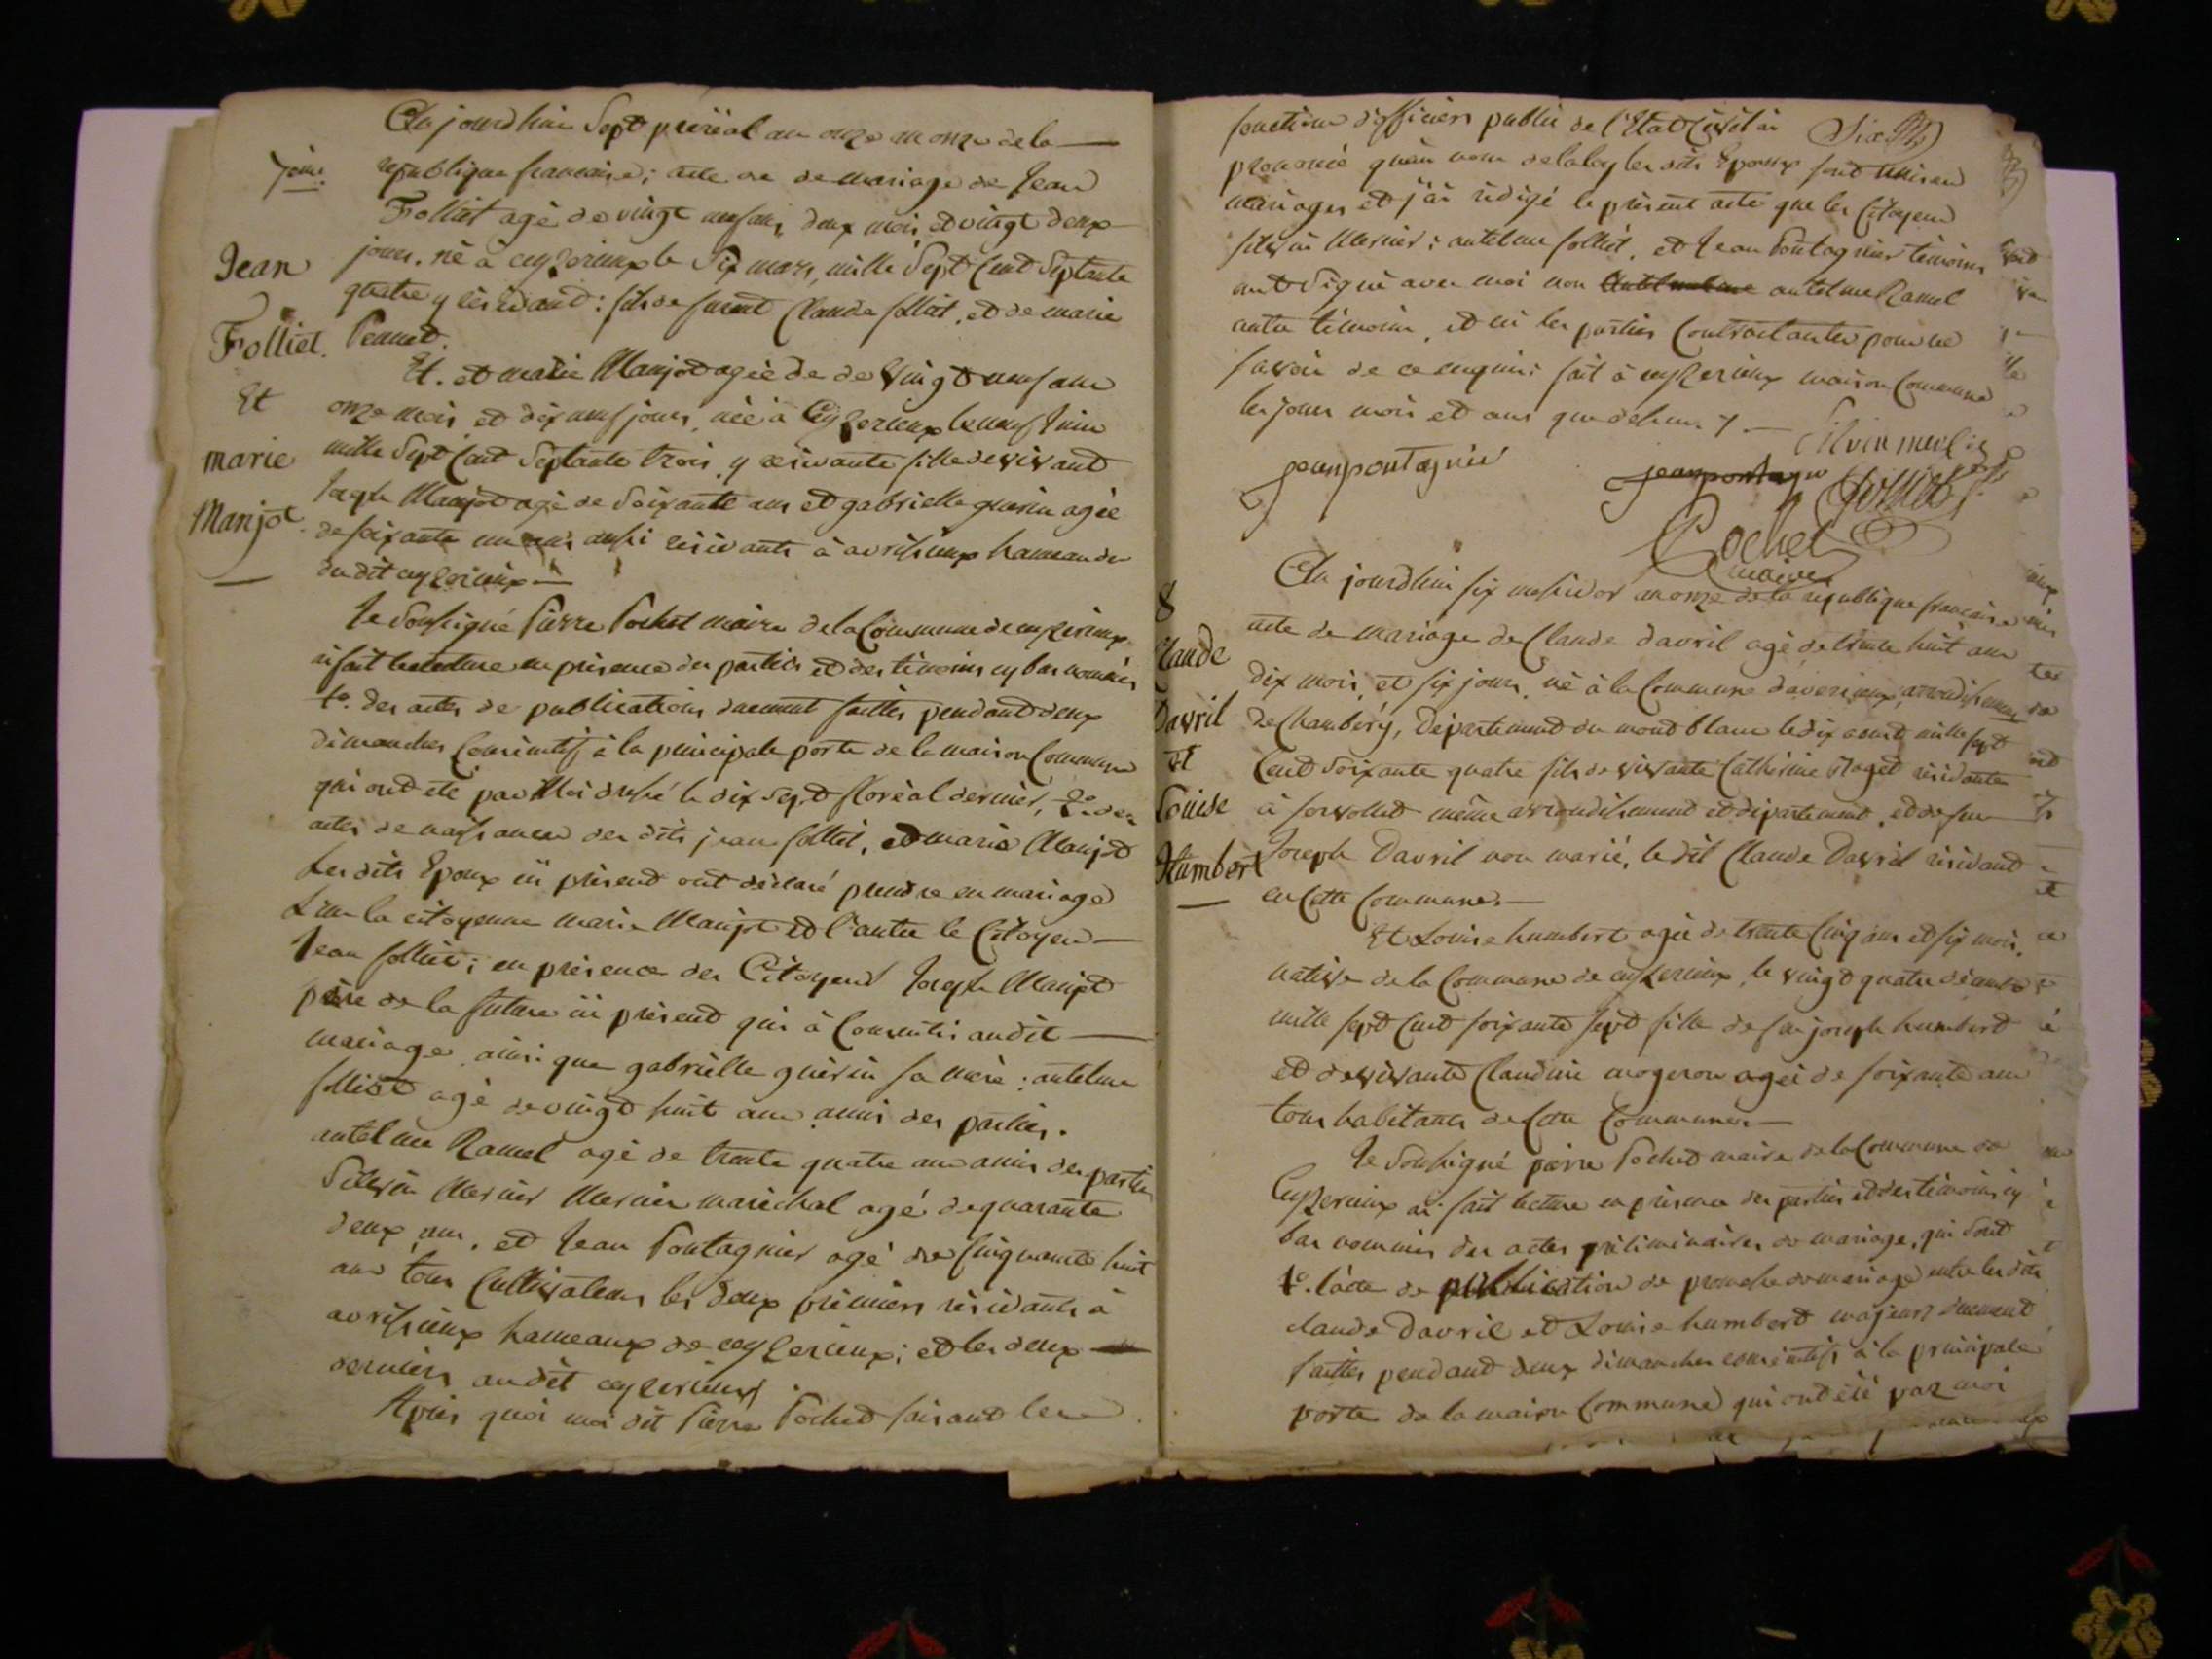 Au jourdhui Sept preréal an onze an onze de la
7eme.
republique francaise ; acte de mariage de Jean
Folliet agé de vingt neuf ans, deux mois et vingt deux
jours. né à ceyzerieux le Six mars, mille Sept Cent Septante
quatre y résidand : fils de Claude folliet, et de marie
Pennet.
Jean
Folliet.
Et
marie
Manjot.
Et. et marie Manjot agée de de vingt neuf ans
onze mois et dix neuf jours, née à Ceyzerieux le neuf Juin
mille Sept Cent Septante trois, y residante fille de vivand
Joseph Manjot agé de Soixante ans et gabrielle guerin agée
de soixante un ans aussi résidants à avrissieux hameau de
du dit ceyzerieux —
Je Soussigné Pierre Pochet maire de la Commune de ceyzerieux
ai fait lecture en présence des parties et des témoins cy bas nommés
1o. des actes de publications duement faittes pendand deux
dimanches Consécutifs à la principale porte de la maison Commune
qui ont été par Moi dressé le dix Sept floréal dernier, 2o. des
actes de naissance des dits jean folliet, et marie Manjot
Les dits Epoux ici présend ont déclaré prendre en mariage
L'un la citoyenne marie Manjot et l'autre le Citoyen —
Jean folliet ; en présence des Citoyens Joseph Manjot
père de la future ici présend qui à Consenti audit —
mariage, ainsi que gabrielle guérin sa mère : antelme
folliet agé de vingt huit ans amis des parties.
antelme Ramel agé de trente quatre ans amis des parties
Silvin Mernier Mernier maréchal agé de quarante
deux ans, et Jean Pontagnier agé de Cinquante huit
ans tous Cultivateurs les deux premiers résidants à
avrissieux hameaux de ceyzerieux ; et les deux
derniers audit ceyzerieux.
Après quoi moi dit Pierre Pochet faisant les
fonctions d'officiers public de l'Etat Civil ai
Six
prononcé qu'au nom de la loy les dits Epoux sont unis en
mariages et j'ai rédigé le présent acte que les Citoyens
Silvin Mernier ; antelme folliet, et Jean Pontagnier témoins
ont Signé avec moi non antelme Ramel
autre témoin, et ni les parties Contractantes pour ne
savoir de ce enquis ; fait à ceyzerieux maison Commune
les jours mois et ans que dessus. —
Silvin
jean pontagnier
jean pontagn
folliet
Pochet
maire
Au jourdhui six messidor an onze de la republique francaise
8
Claude
Davril
et
Louise
Humbert
acte de mariage de Claude davril agé de trente huit ans
dix mois, et six jours, né à la Commune daverieux, arrondissement
de Chambéry, Département du mond blanc le dix aoust mille sept
Cent Soixante quatre fils de vivante Catherine résidante
à même arrondissement et département, et de feu
Joseph Davril non marié, le dit Claude Davril résidand
en Cette Commune. —
Et Louise humbert agée de trente Cinq ans et six mois,
native de la Commune de ceyzerieux, le vingt quatre décembre
mille sept Cent soixante sept fille de feu joseph humbert
et de vivante Claudine mogeron agée de soixante ans
tous habitants de Cette Commune. —
Je Soussigné pierre Pochet maire de la Commune de
Ceyzerieux ai fait lecture en présence des parties et des témoins cy
bas nommés des actes préliminaires de mariage, qui sont
1o. l'acte de publication de promesse de mariage entre les dits
claude Davril et Louise humbert majeurs duement
faittes pendand deux dimanches consécutifs à la principale
porte de la maison Commune qui ont été par moi